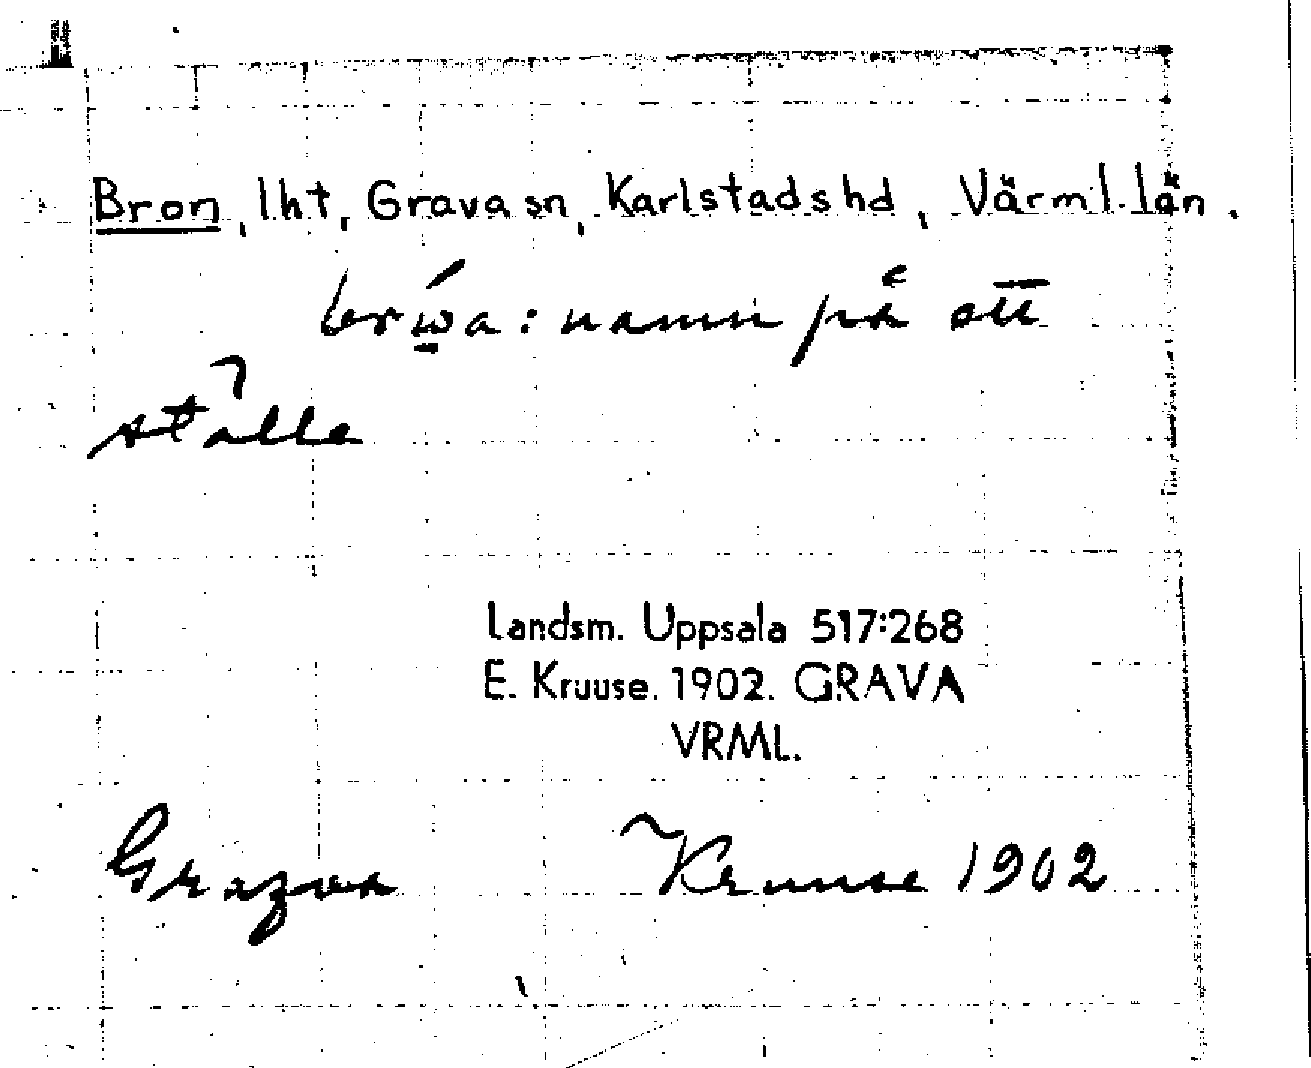 Bron, lht, Grava sn, Karlstads hd, Värml. län.
namn på ett
ställe
Landsm. Uppsala 517:268
E. Kruuse. 1902. GRAVA
VRML.
Kruuse 1902